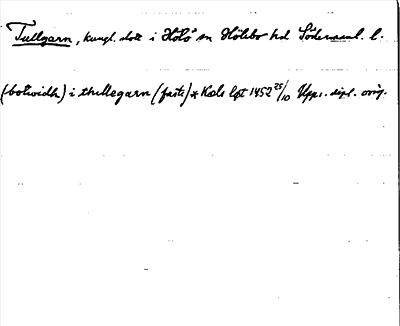 Tullgarn, kungl. slott i Hölö sn Hölebo hd Södermanl. l.
(botwidh) i thullegarn (faste) * Kåls lgt 1452 25/10 Upps. dipl. orig.